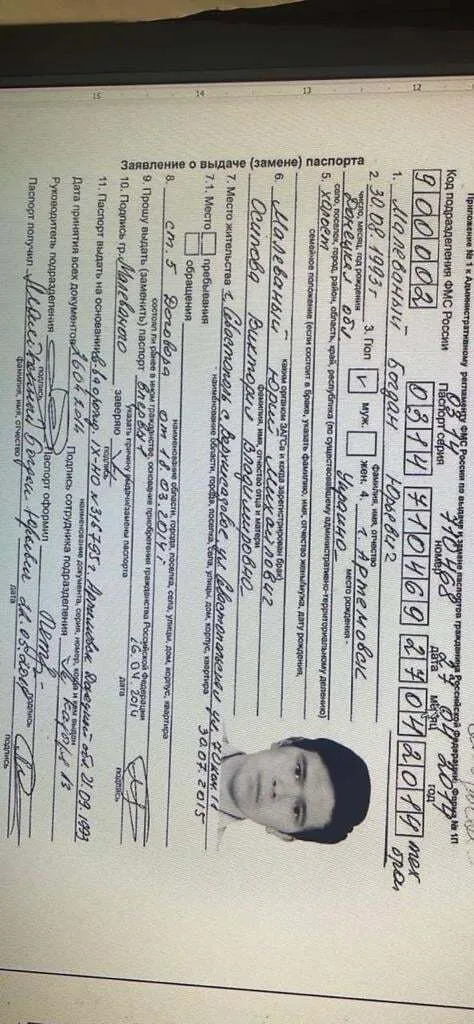 Приложение № 1 к Административному регламенту ФМС России по выдаче и замене паспортов гражданина Форма № 1П
Код подразделения ФМС России
Паспорт серия номер дата месяц год
0314 710468 27 04 2014
900002 0314 710469 27 04 2019
Заявление о выдаче (замене) паспорта
1. Малеваный Богдан Юрьевич
фамилия, имя, отчество
2. 30.08.1993г 3. Пол муж. жен. 4. г. Артемовск
число, месяц, год рождения место рождения -
Донецкая обл Украина
село, поселок, город, район, область, край, республика (по существовавшему административно-территориальному делению)
5. холост
семейное положение (если состоит в браке, указать фамилию, имя, отчество жены/мужа, дату рождения,
каким органом ЗАГСа и когда зарегистрирован брак)
6. Малеваный Юрий Михайлович
фамилия, имя, отчество отца и матери
Осипова Виктория Владимировна
7. Место жительства г. Севастополь
- наименование области, города, поселка, села, улицы, дом, корпус, квартира
30.07.2015
7.1. Место пребывания
обращения
наименование области, города, поселка, села, улицы, дом, корпус, квартира
8. ст. 5 Договора от 18.03.2014г
состоял ли ранее в ином гражданстве, основание приобретения гражданства Российской Федерации
9. Прошу выдать (заменить) паспорт Впервые
указать причину выдачи/замены паспорта
10. Подпись гр. Малеваного заверяю 26.04.2014
подпись дата подпись
11. Паспорт выдать на основании
№ 316795 г. Артемовск Донецкой обл. 21.09.1993
наименование документа, серия, номер, когда и кем выдан
Дата принятия всех документов Подпись сотрудника подразделения
Руководитель подразделения Паспорт оформил
подпись подпись
Паспорт получил Малеваный Богдан Юрьевич
фамилия, имя, отчество дата подпись